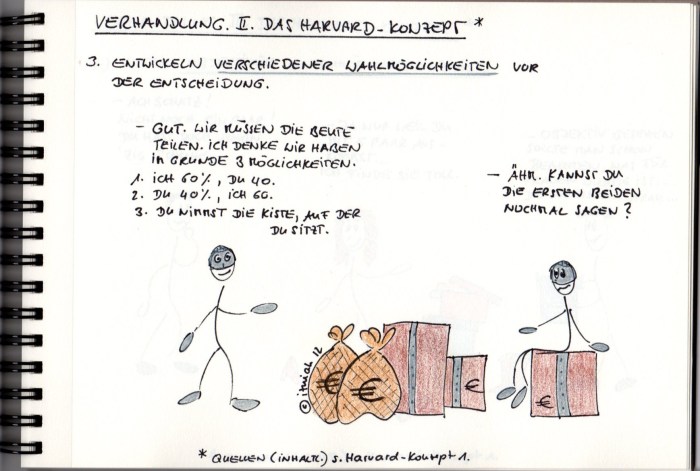 VERHANDLUNG. II. DAS HARVARD-KONZEPT *
3. ENTWICKELN VERSCHIEDENER WAHLMÖGLICHKEITEN VOR
DER ENTSCHEIDUNG.
- GUT. WIR MÜSSEN DIE BEUTE
TEILEN. ICH DENKE WIR HABEN
IM GRUNDE 3 MÖGLICHKEITEN.
1. ICH 60%, DU 40.
2. DU 40%, ICH 60.
3. DU NIMMST DIE KISTE, AUF DER
DU SITZT.
- ÄHM. KANNST DU
DIE ERSTEN BEIDEN
NOCHMAL SAGEN?
€
€
€
€
© 12
* QUELLEN (INHALTL.) s. Harvard-Konzept 1.